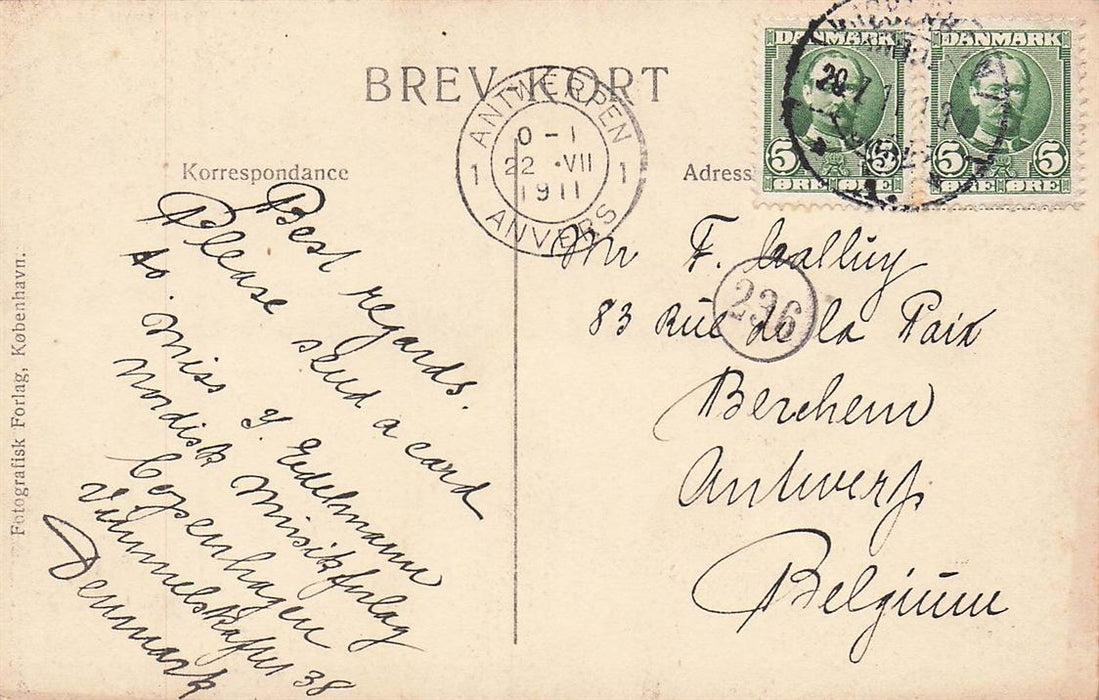 BREV-KORT
Korrespondance
Adress
Fotografisk Forlag, København.
DANMARK
5 5
ØRE ØRE
DANMARK
5 5
ØRE ØRE
ANTWERPEN
0-1
1 22 ·VII 1
1911
ANVERS
236
Best regards.
Please send a card
to. Miss Y. Edelmann
Nordisk Musikforlag
Copenhagen
38
Denmark
Mr F.
83 Rue de la Paix
Berchem
Antwerp
Belgium